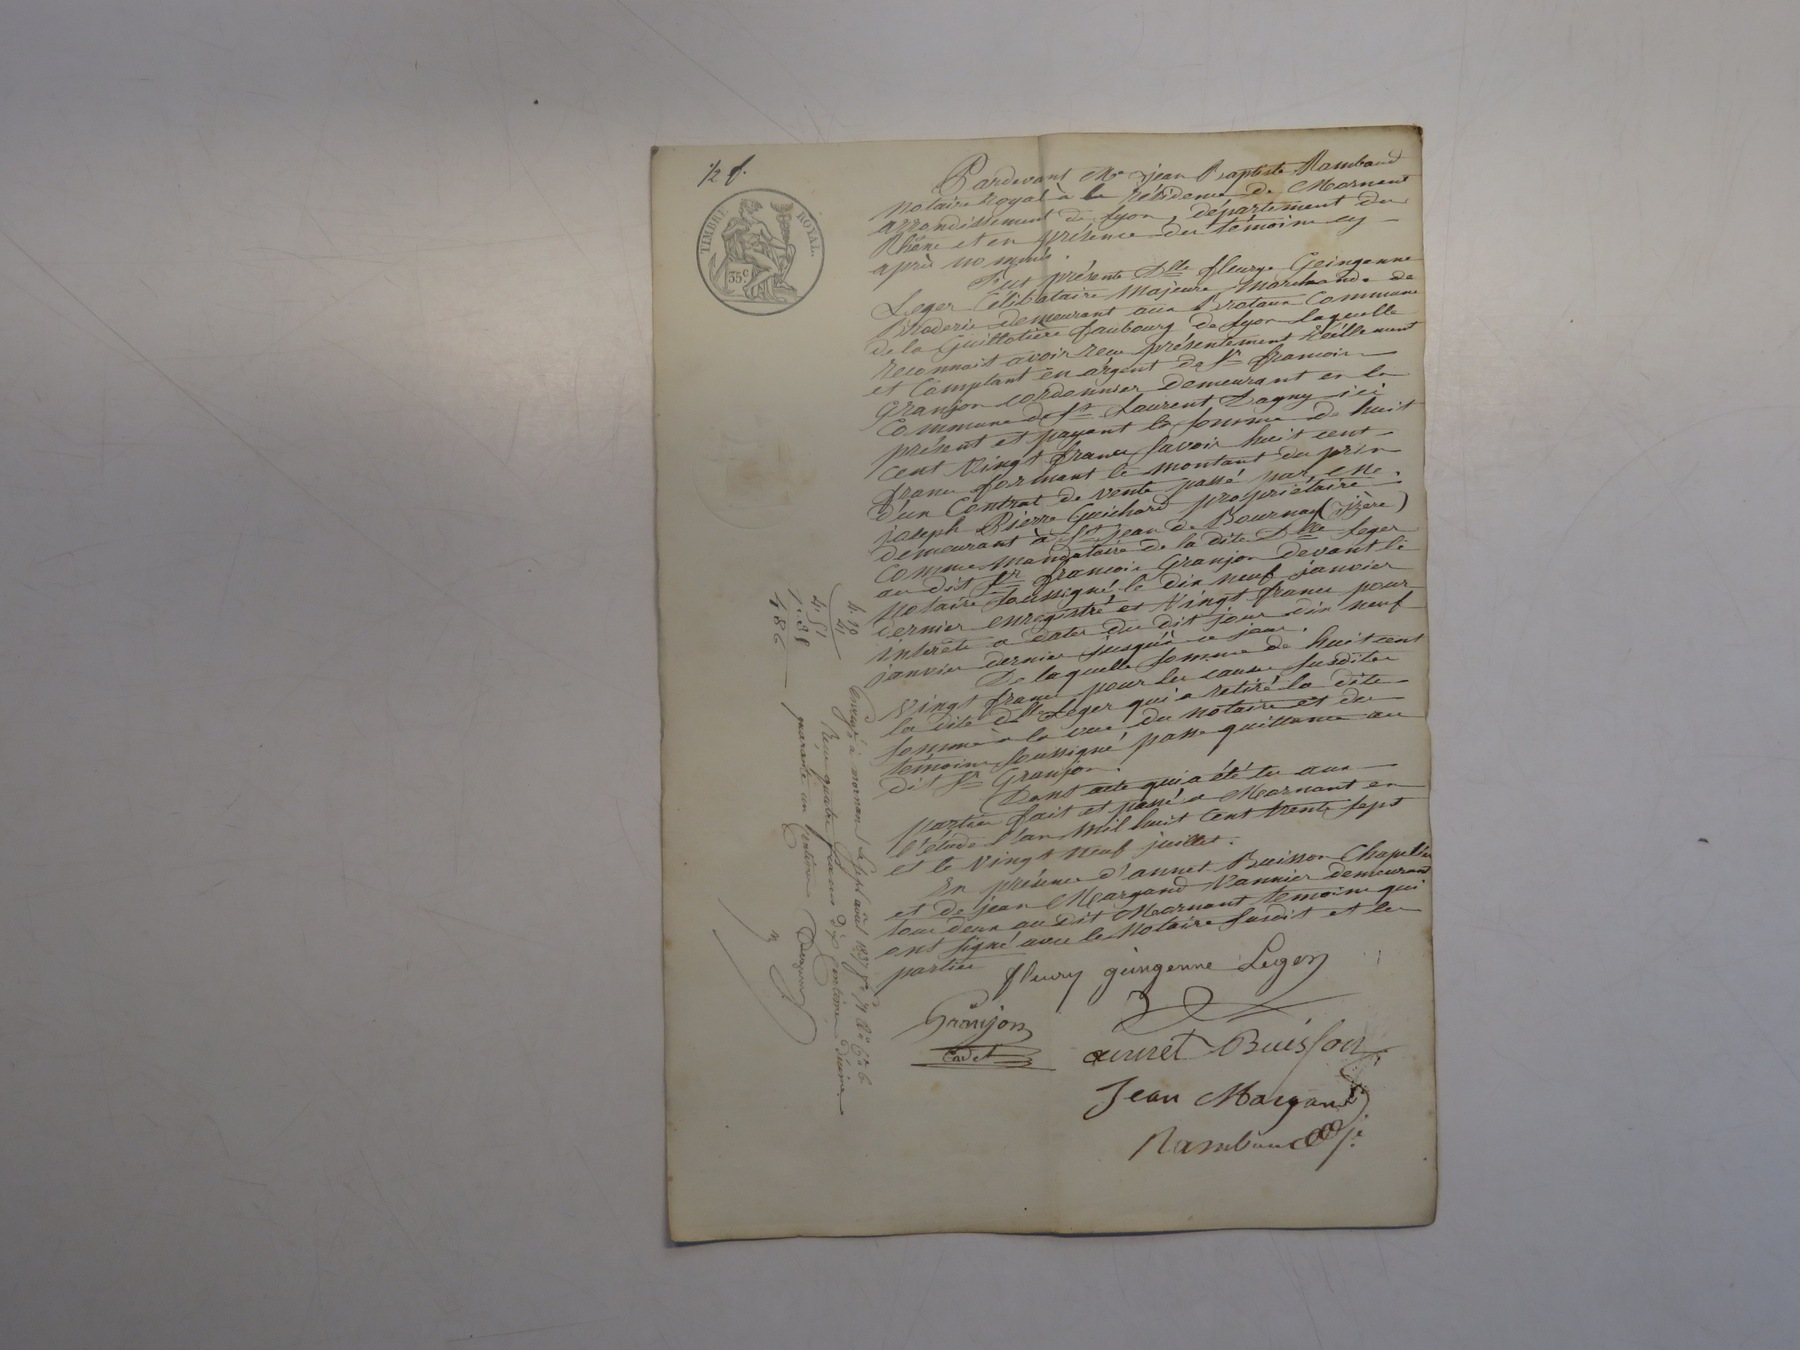 1/2 f.
TIMBRE ROYAL.
35.c
Pardevant Me jean Baptiste Rambaud
Notaire Royal à la résidence de Mornant
arrondissement de Lyon, département du
Rhône et en présence des témoins cy
après nommés.
Fut présente Dlle fleurye Geingenne
Leger Célibataire Majeure Marchande de
Broderie demeurant aux Brotaux Commune
de la Guillotière faubourg de Lyon laquelle
reconnait avoir reçu présentement réellement
et Comptant en argent de Sr francois
Granjon cordonnier demeurant en la
Commune de St Laurent Dagny ici
présent et payant la somme de huit
cent Vingt francs Savoir huit cent
francs formant le montant du prix
d'un Contrat de vente passé par Me
joseph Pierre Guichard propriétaire
demeurant à St jean de Bournay (izère)
Comme mandataire de la dite Dlle Leger
au dit Sr francois Granjon devant le
Notaire Soussigné le dix neuf janvier
dernier enregistré et Vingt francs pour
intérêts a dater du dit jour dix neuf
janvier dernier jusqu'à ce jour.
De laquelle somme de huit cent
Vingt francs pour les causes susdites
la dite Dlle Leger qui a retiré la dite
somme à la vue du notaire et des
témoins soussignés passe quittance au
dit Sr Granjon.
Dont acte qui a été lu aux
parties fait et passé a Mornant en
l'étude l'an Mil huit Cent trente sept
et le Vingt Neuf juillet.
En présence d'annet Buisson Chapelier
et de jean Margand Vannier demeurant
tous deux au dit Mornant temoins qui
ont signé avec le Notaire susdit et les
parties
fleury geingenne Leger
Granjon
Cadet
annet Buisson
Jean Margand
Rambaud
4. 10
41
4. 51
Enregistré à mornant le sept août 1837
Reçu quatre francs dix centimes décime
quarante un centimes